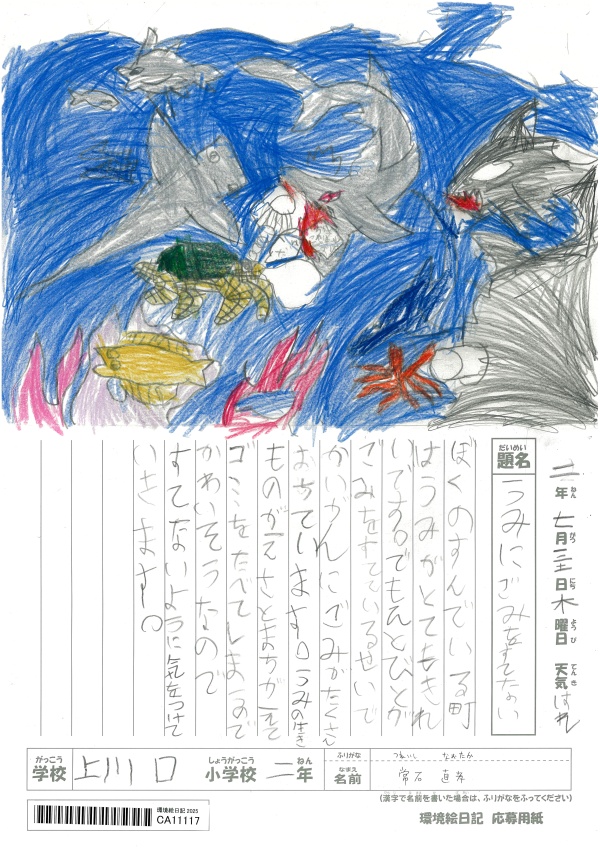 二年七月三十一日木曜日 天気はれ
ねん がつ にち ようび てんき
だいめい
題名 うみにごみをすてない
ぼくのすんでいる町
はうみがとてもきれ
いです。でもひとびとが
ごみをすてているせいで
かいがんにごみがたくさん
おちています。うみの生き
ものがえさとまちがえて
ゴミをたべてしまうので
かわいそうなので
すてないように気をつけて
いきます。
がっこう しょうがっこう ねん ふりがな つねいし なおたか
学校 上川口 小学校 二年 なまえ 名前 常石 直孝
(漢字で名前を書いた場合は、ふりがなをふってください)
環境絵日記 2025
CA11117
環境絵日記 応募用紙